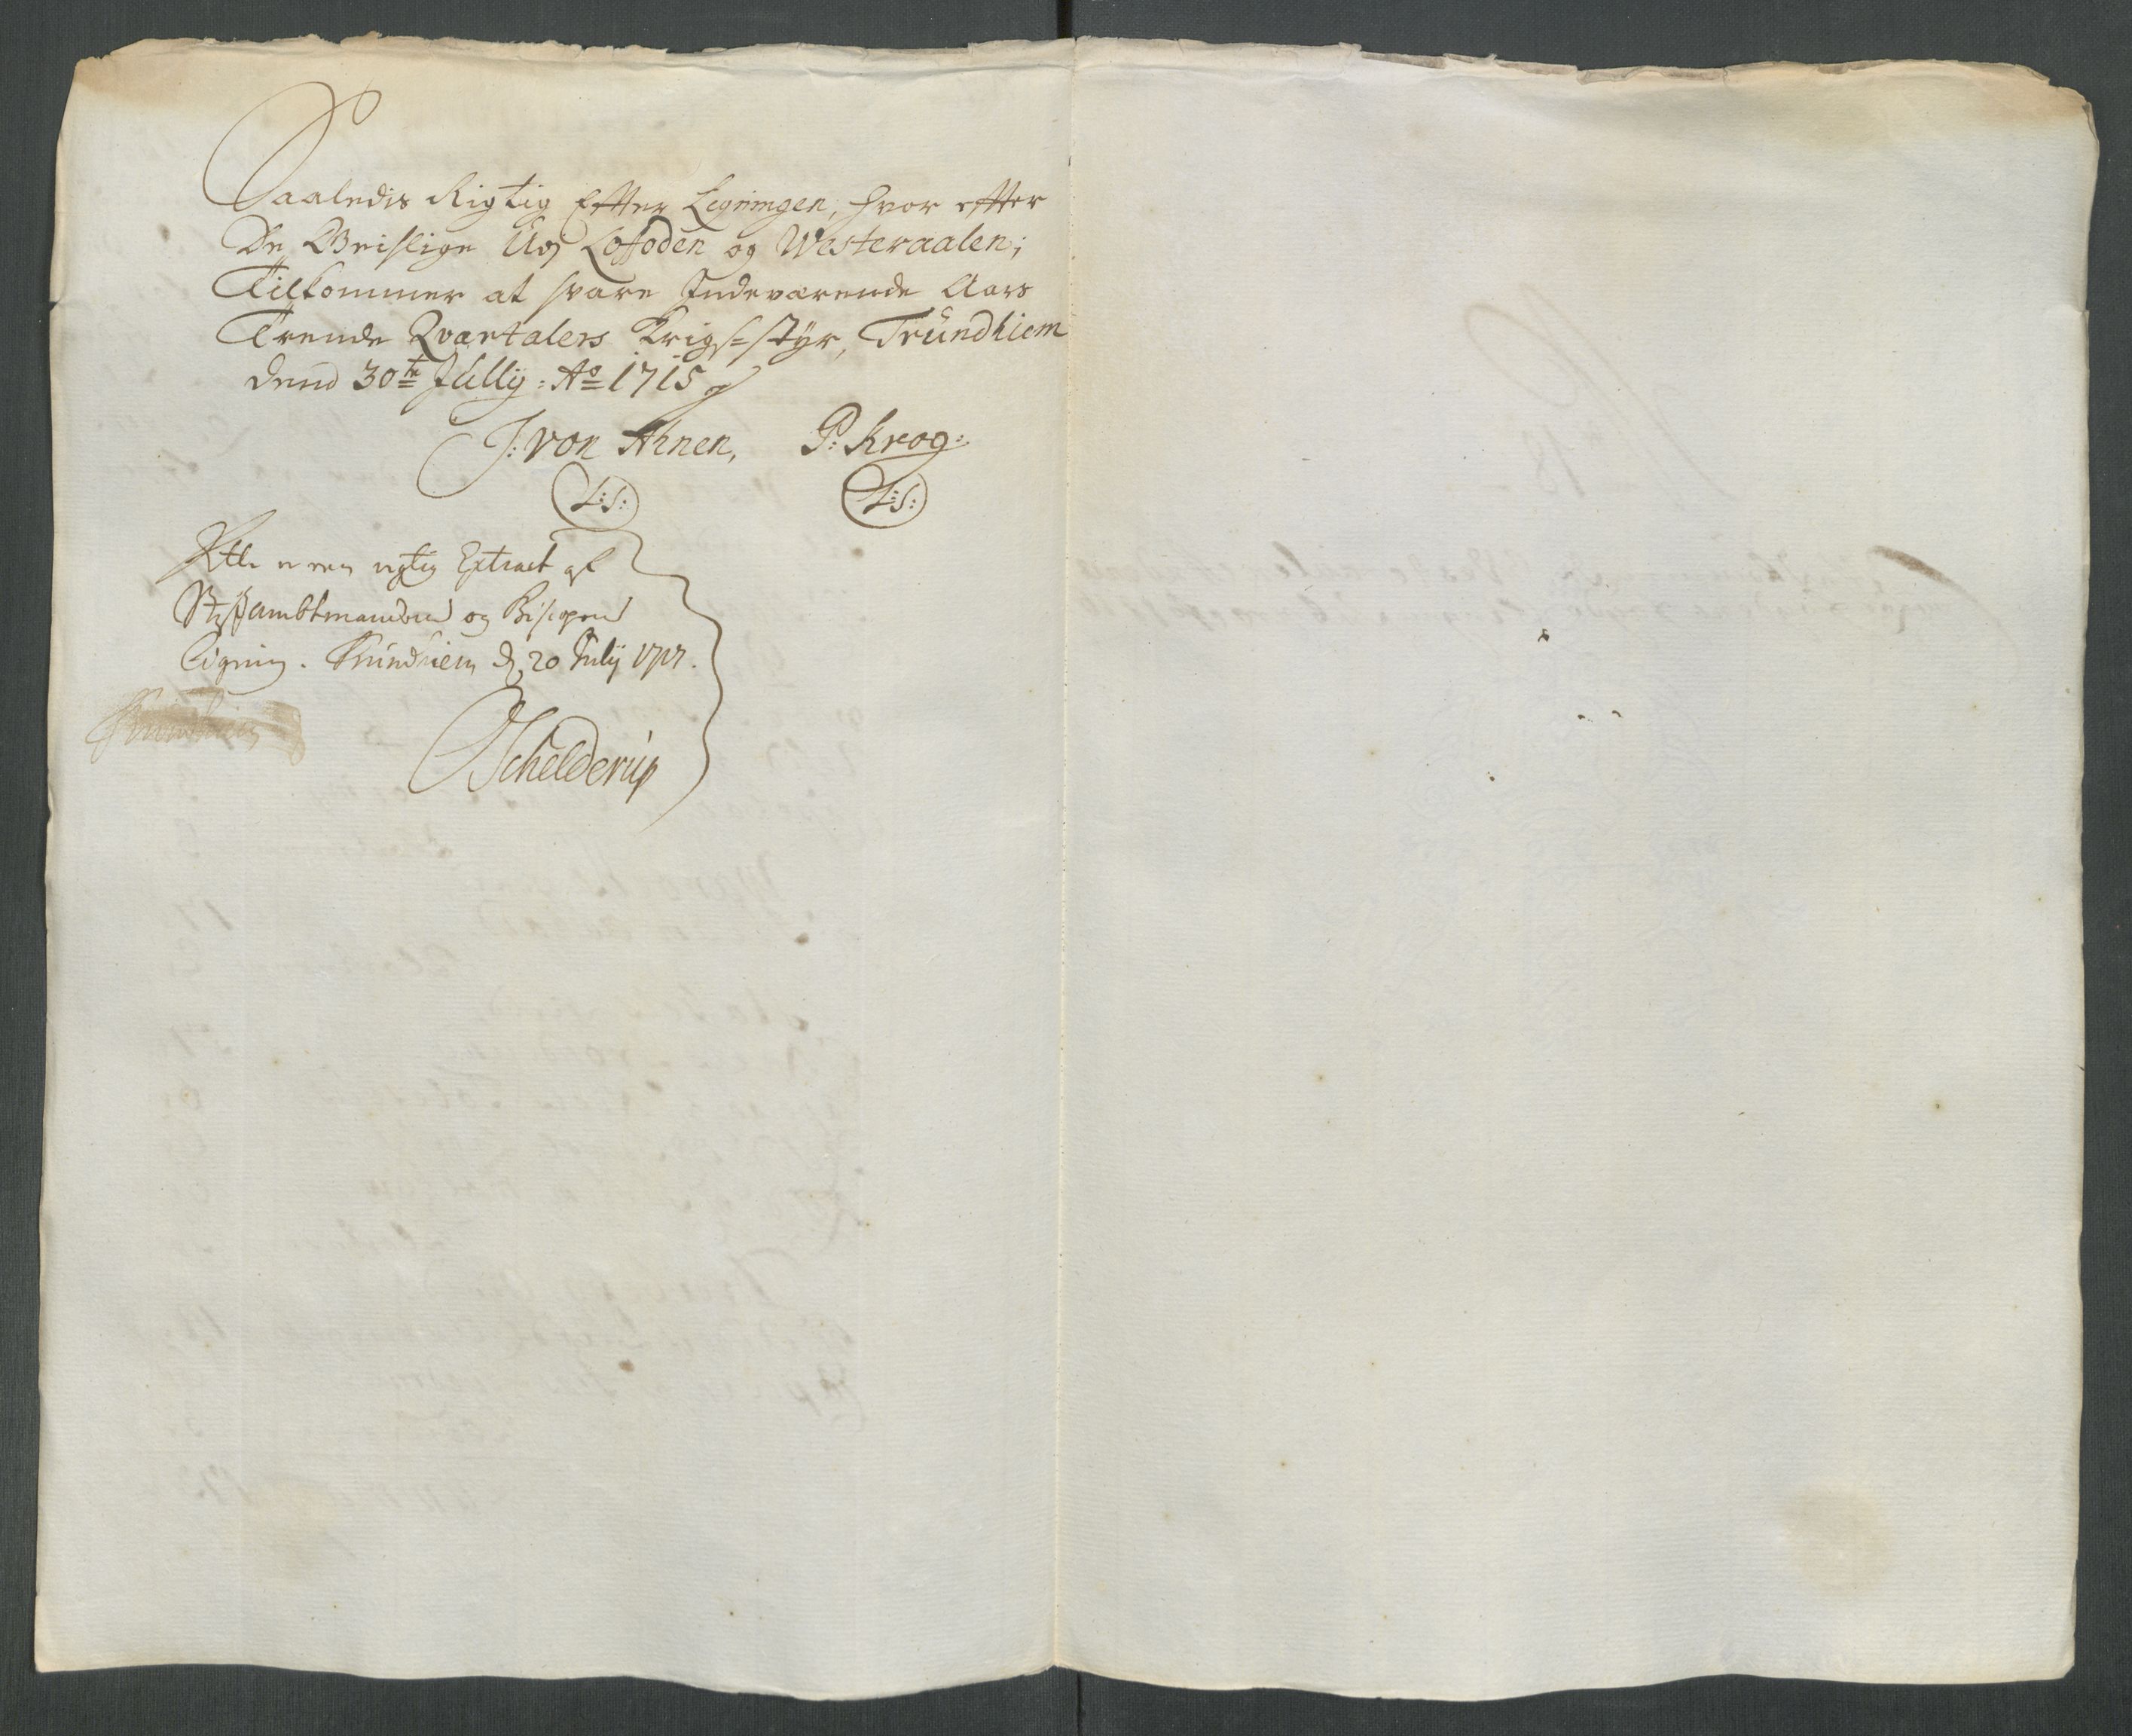 Saaledis Rigtig Efter Ligningen, hvor efter
De Geistlige Udj Loffoden og Westeraalen;
Tilkommer at svare Indeværende Aars
Trende Qvartalers Krigs=styr, Trundhiem
dend 30te Jully: Ao 1715
J: von Ahnen, P: Krog:
L:S: L:S:
Dette er een rigtig Extract af
Stiftambtmandens og Bispens
Ligning. Trundhiem d. 20 July 1717.
Trundhiem
Schelderup